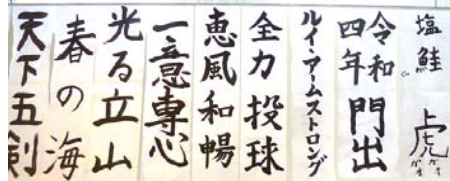 塩鮭
上
ガオ
ガオ
令和
四年
門出
ルイ・アームストロング
全力投球
恵風和暢
一意専心
光る立山
春の海
天下五剣